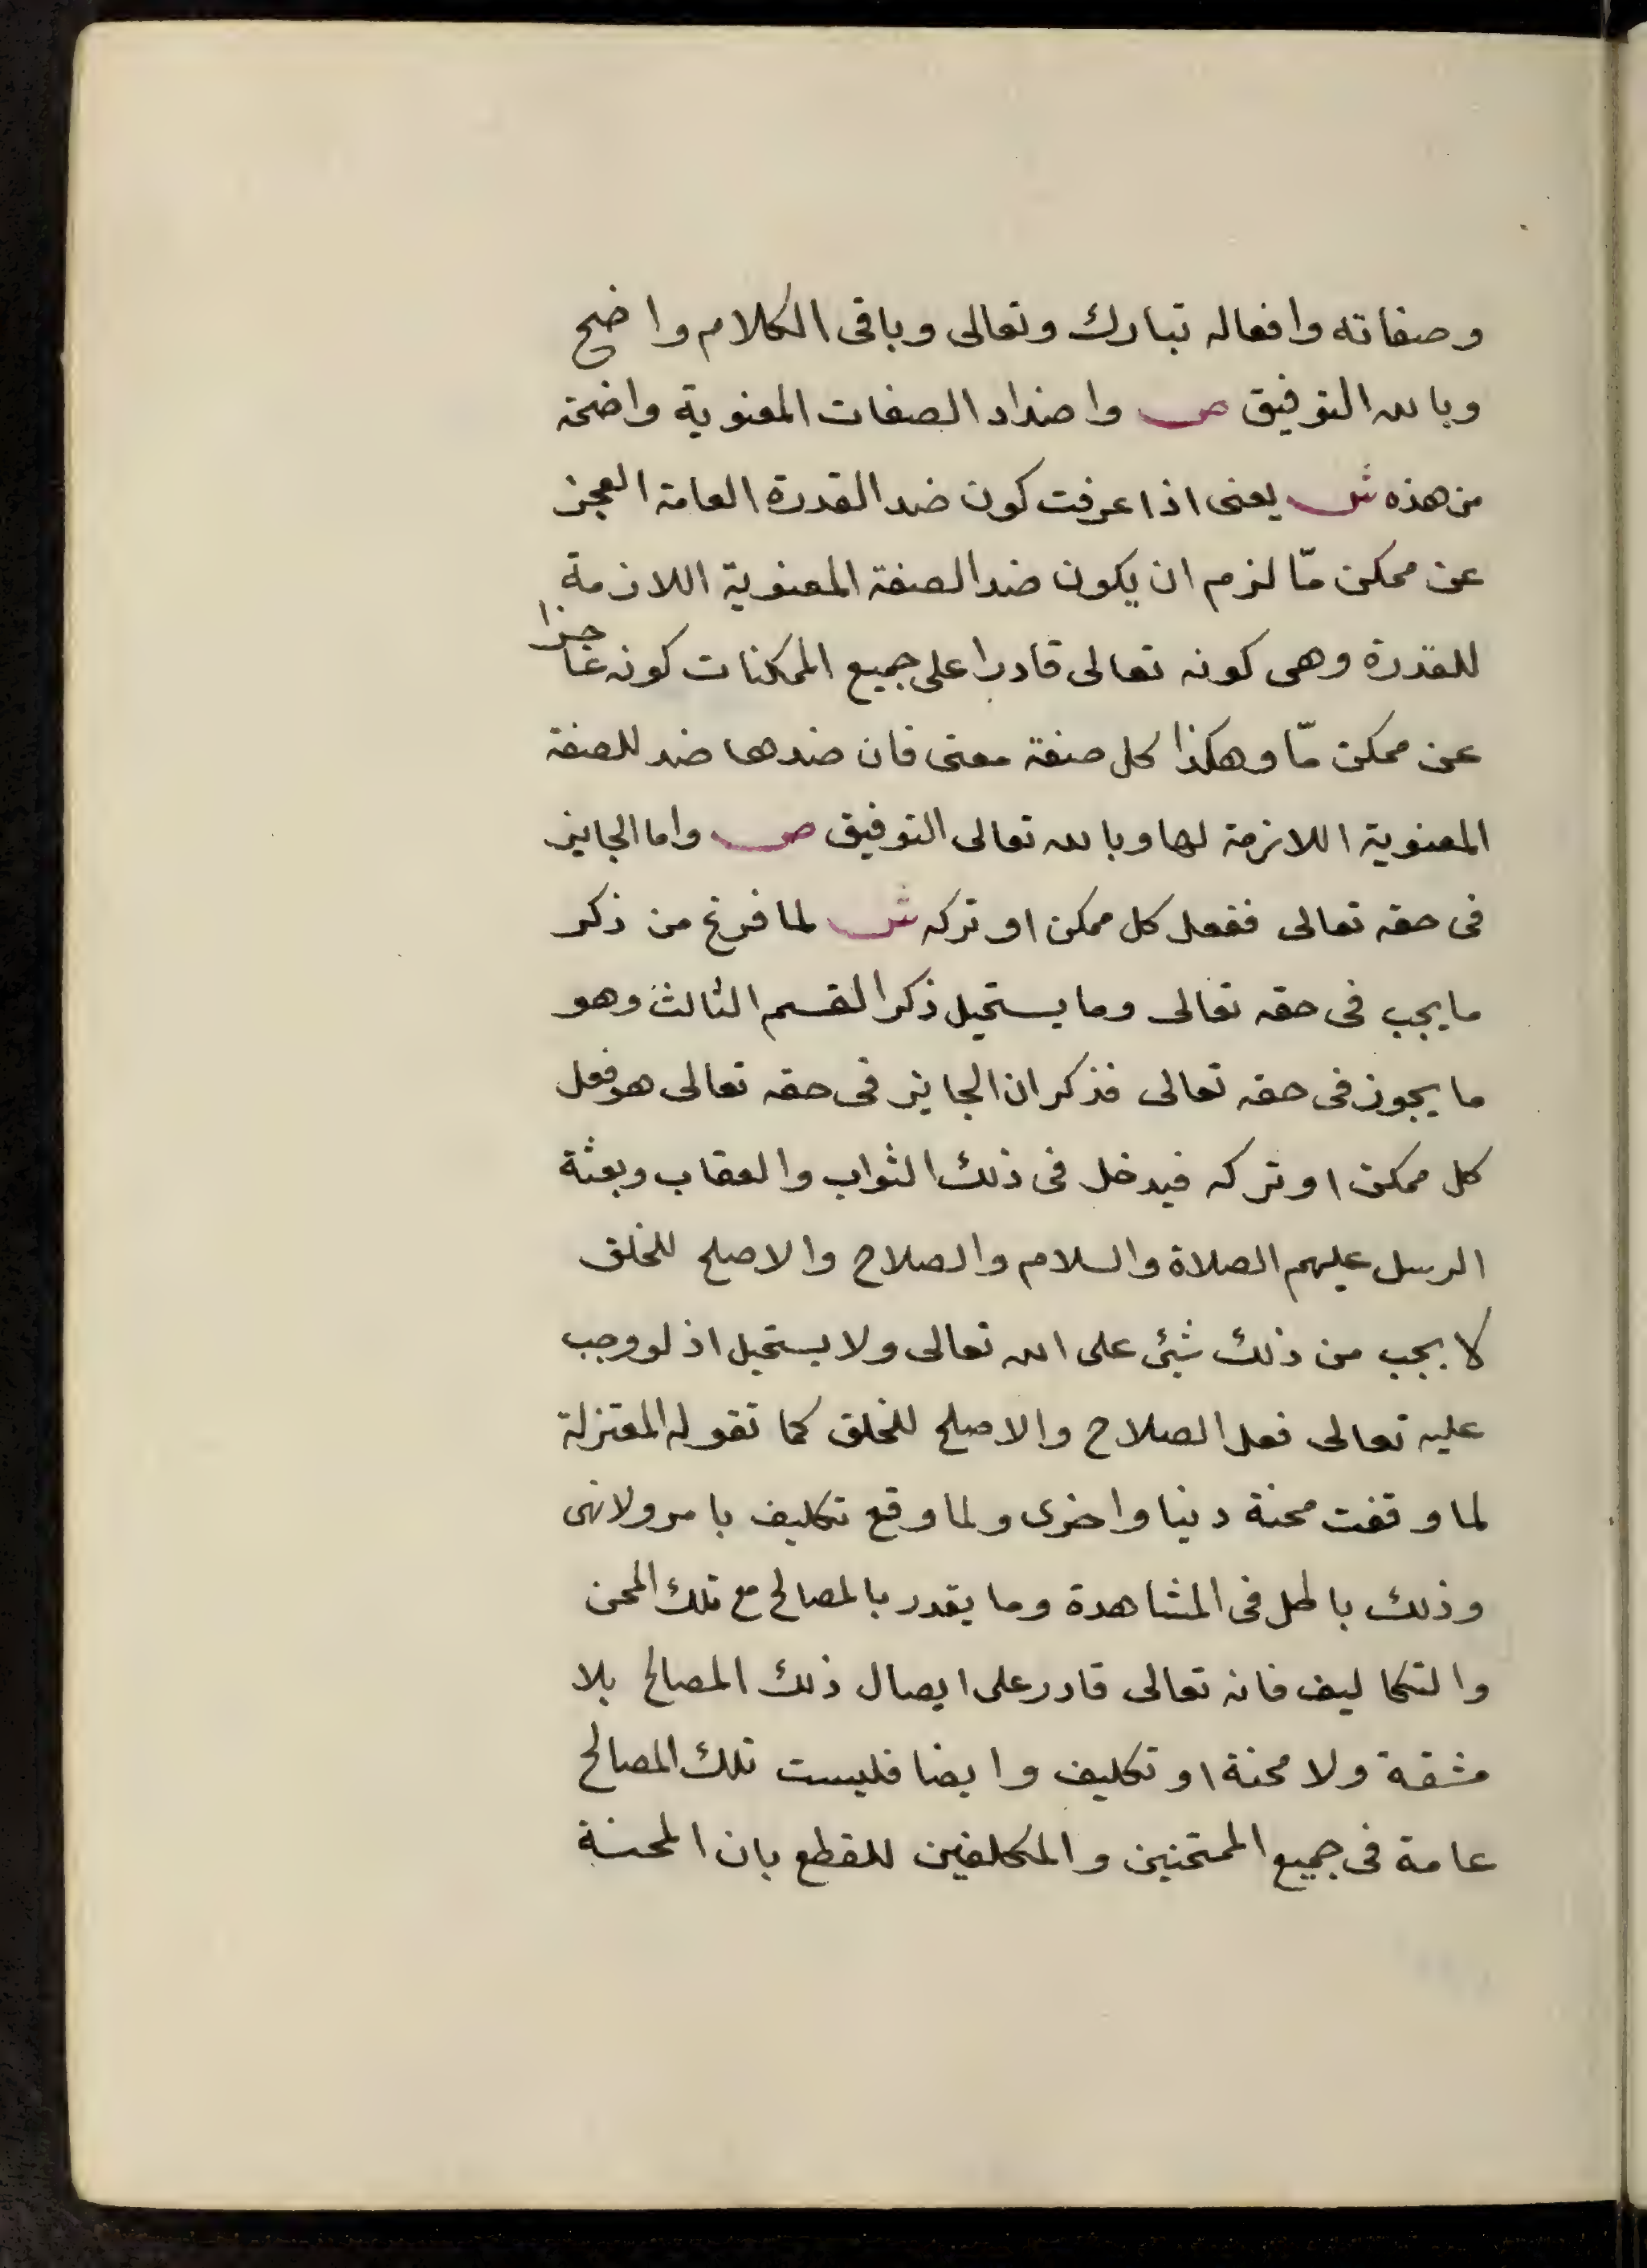 وصفاته وافعاله تبارك وتعالى وباقى الكلام واضح
وبالله التوفيق ص واضداد الصفات المعنوية واضحة
من هذه ش يعنى اذا عرفت كون ضد القدرة العامة العجز
عن ممكن مّا لزم ان يكون ضد الصفة المعنوية اللازمة
للقدرة وهى كونه تعالى قادرا على جميع الممكنات كونه عاجزا
عن ممكن مّا وهكذا كل صفة معنى فان ضدها ضد للصفة
المعنوية اللازمة لها وبالله تعالى التوفيق ص واما الجايز
فى حقه تعالى ففعل كل ممكن او تركه ش لما فرغ من ذكر
ما يجب فى حقه تعالى وما يستحيل ذكر القسم الثالث وهو
ما يجوز فى حقه تعالى فذكر ان الجايز فى حقه تعالى هو فعل
كل ممكن او تركه فيدخل فى ذلك الثواب والعقاب وبعثة
الرسل عليهم الصلاة والسلام والصلاح والاصلح للخلق
لا يجب من ذلك شئ على الله تعالى ولا يستحيل اذ لو وجب
عليه تعالى فعل الصلاح والاصلح للخلق كما تقوله المعتزلة
لما وقعت محنة دنيا واخرى ولما وقع تكليف بامر ولا نهى
وذلك باطل فى المشاهدة وما يقدر بالمصالح مع تلك المحن
والتكاليف فانه تعالى قادر على ايصال ذلك المصالح بلا
مشقة ولا محنة او تكليف وايضا فليست تلك المصالح
عامة فى جميع الممتحنين والمكلفين للقطع بان المحنة